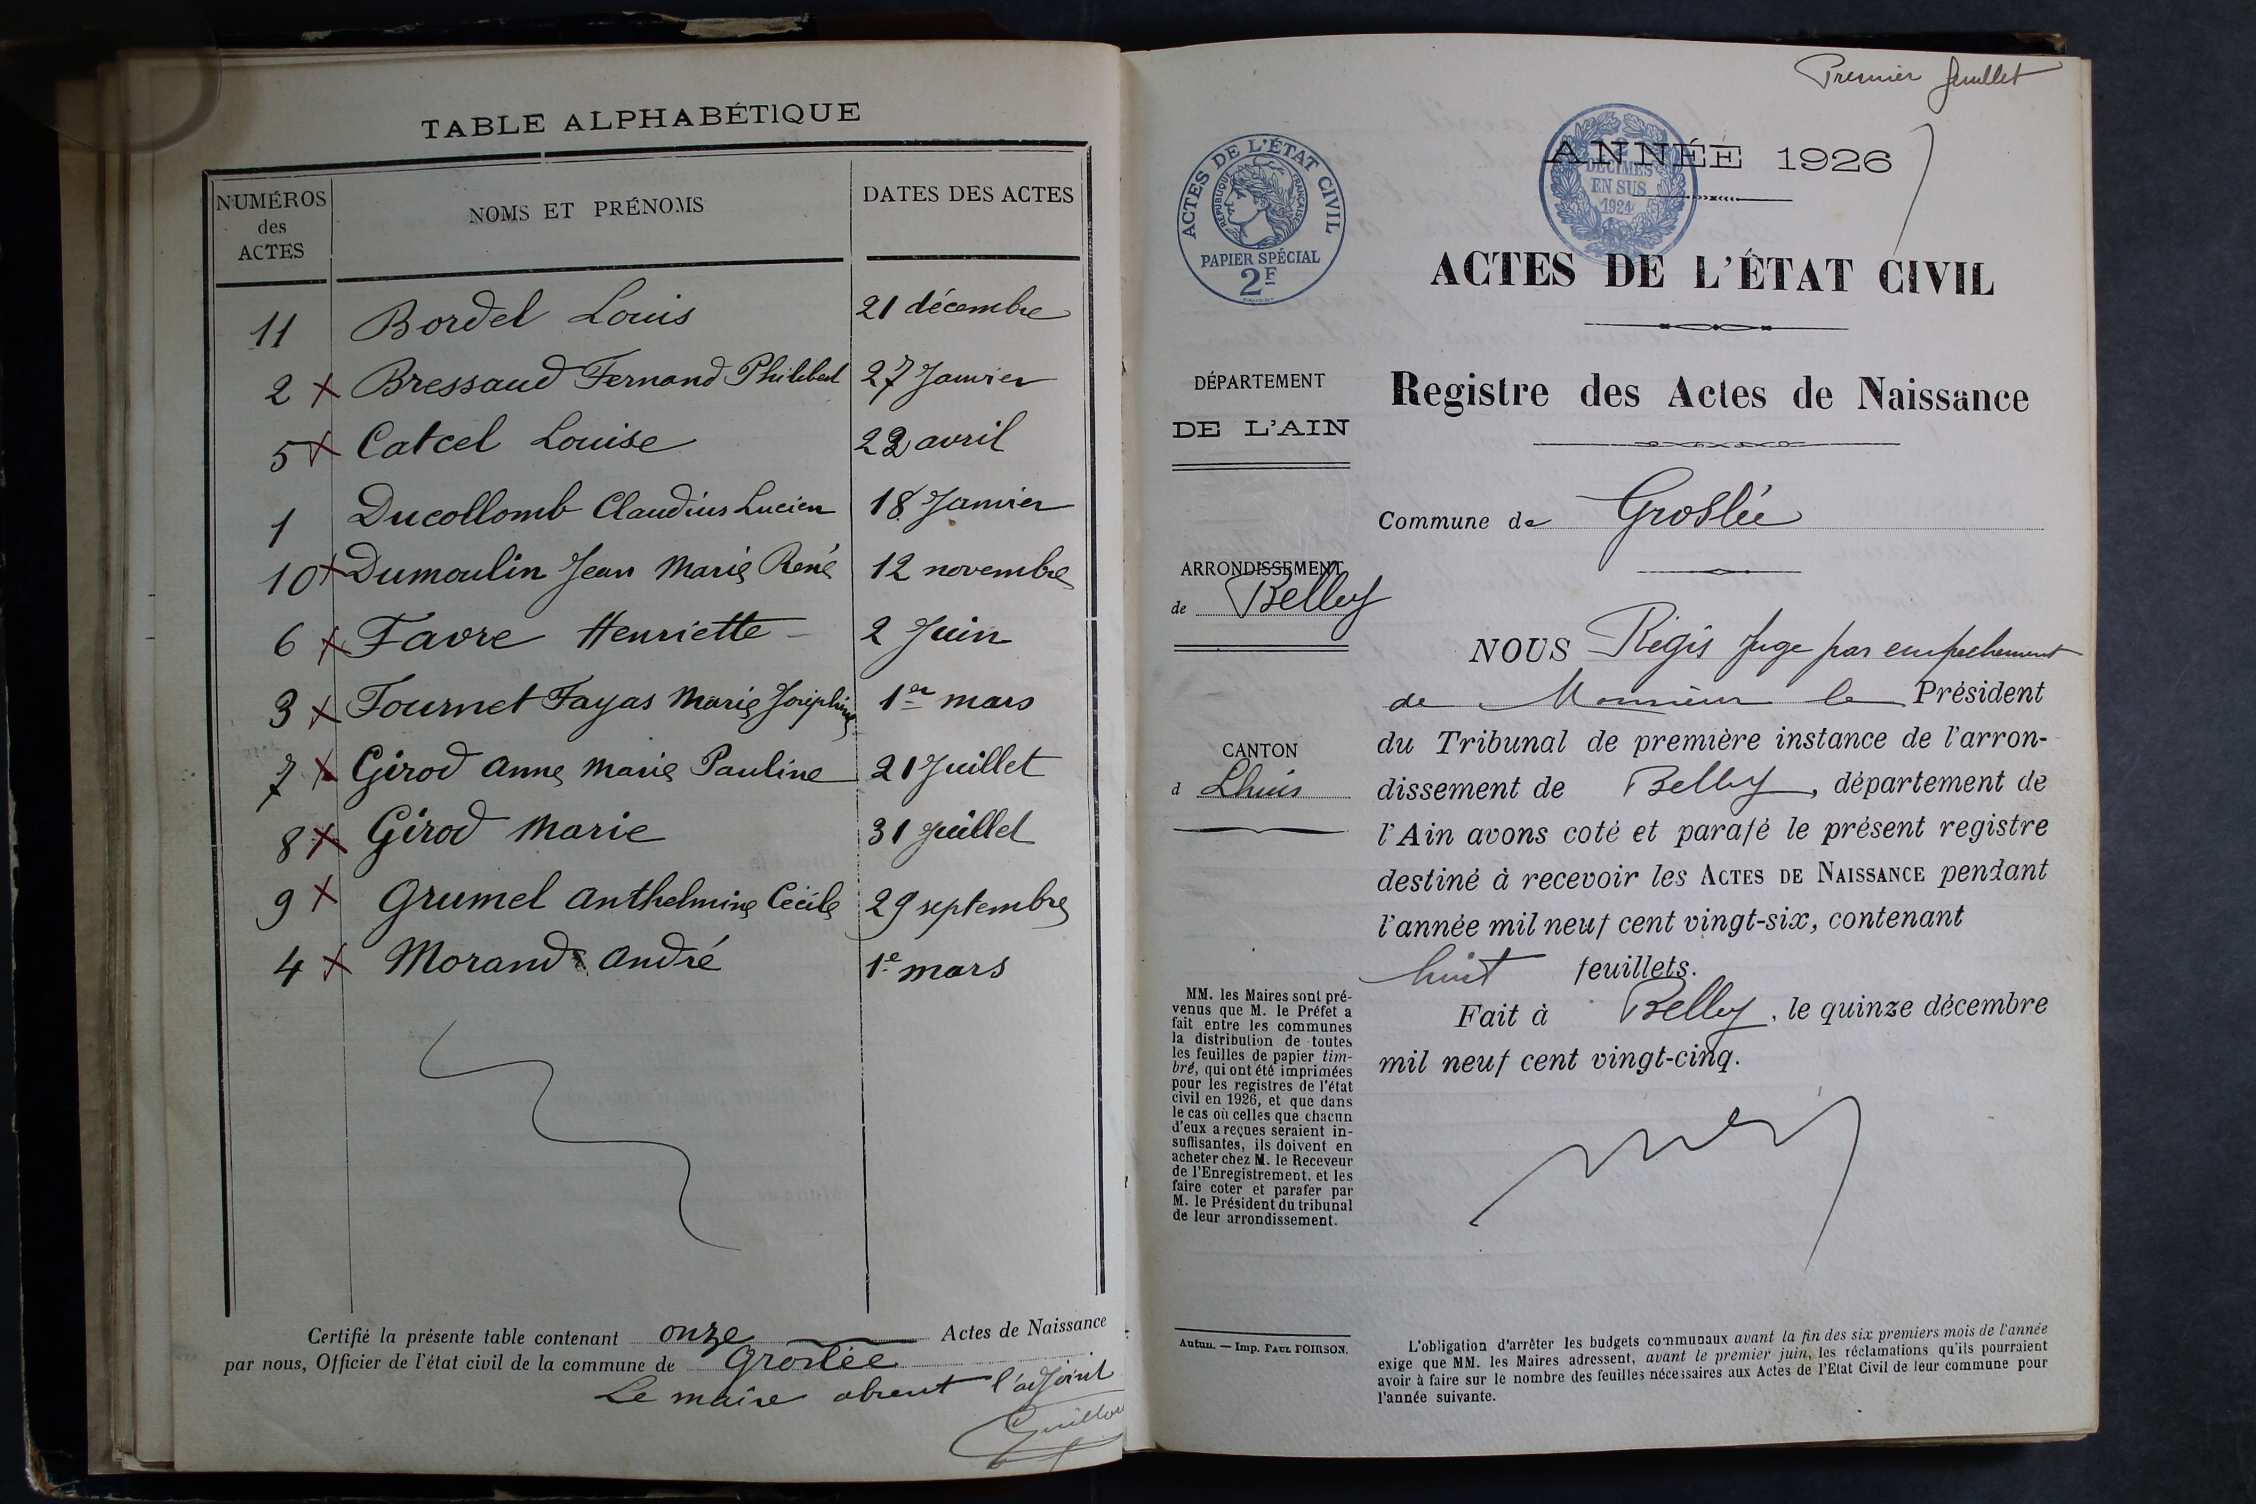 TABLE ALPHABÉTIQUE
NUMÉROS des ACTES NOMS ET PRÉNOMS DATES DES ACTES
11 Bordel Louis 21 décembre
2 x Bressaud Fernand Philibert 27 Janvier
5 x Catcel Louise 22 avril
1 Ducollomb Claudius Lucien 18 Janvier
10 x Dumoulin Jean Marie René 12 novembre
6 x Favre Henriette 2 Juin
3 x Fournet Fayas Marie Joséphine 1er mars
7 x Girod Anne Marie Pauline 21 Juillet
8 x Girod Marie 31 Juillet
9 x Grumel Anthelmine Cécile 29 septembre
4 x Morand André 1e mars
Certifié la présente table contenant onze Actes de Naissance
par nous, Officier de l'état civil de la commune de Groslée
Le maire absent l'adjoint
Premier feuillet
ACTES DE L'ÉTAT CIVIL
RÉPUBLIQUE FRANÇAISE
PAPIER SPÉCIAL
2F
2
DÉCIMES
EN SUS
1924
ANNÉE 1926
ACTES DE L'ÉTAT CIVIL
Registre des Actes de Naissance
Commune de Groslée
DÉPARTEMENT
DE L'AIN
ARRONDISSEMENT
de Belley
CANTON
d Lhuis
MM. les Maires sont pré-
venus que M. le Préfet a
fait entre les communes
la distribution de toutes
les feuilles de papier tim-
bré, qui ont été imprimées
pour les registres de l'état
civil en 1926, et que dans
le cas où celles que chacun
d'eux a reçues seraient in-
suffisantes, ils doivent en
acheter chez M. le Receveur
de l'Enregistrement, et les
faire coter et parafer par
M. le Président du tribunal
de leur arrondissement.
Autun. — Imp. PAUL POIRSON.
NOUS Régis Juge par empechement
de Monsieur le Président
du Tribunal de première instance de l'arron-
dissement de Belley, département de
l'Ain avons coté et parafé le présent registre
destiné à recevoir les ACTES DE NAISSANCE pendant
l'année mil neuf cent vingt-six, contenant
huit feuillets.
Fait à Belley, le quinze décembre
mil neuf cent vingt-cinq.
L'obligation d'arrêter les budgets communaux avant la fin des six premiers mois de l'année
exige que MM. les Maires adressent, avant le premier juin, les réclamations qu'ils pourraient
avoir à faire sur le nombre des feuilles nécessaires aux Actes de l'Etat Civil de leur commune pour
l'année suivante.